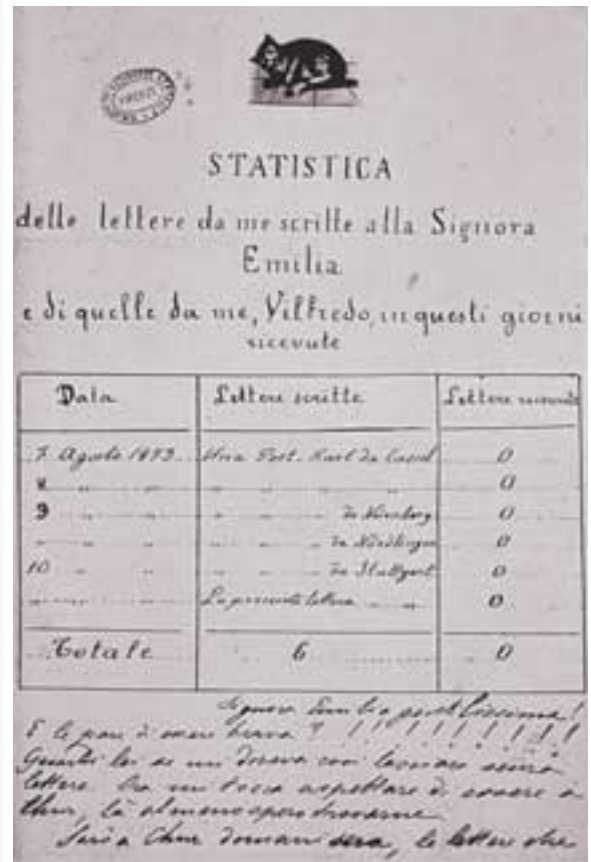 FIRENZE
STATISTICA
delle lettere da me scritte alla Signora
Emilia
e di quelle da me, Vilfredo, in questi giorni
ricevute
Data Lettere scritte Lettere ricevute
7 Agosto 1873 Una Post. Karl da Cassel 0
8 " " " " " " 0
9 " " " " " da Nürnberg 0
" " " " " " da Nördlingen 0
10 " " " " " da Stuttgart 0
La presente lettera 0
Totale 6 0
Signora Emilia gentilissima!
E le pare di essere brava ? ! ! ! ! ! ! ! ! !
lasciare senza
lettere. Ora mi tocca aspettare di essere a
Chur, là almeno spero trovarne.
Sarò a Chur domani sera, le lettere che